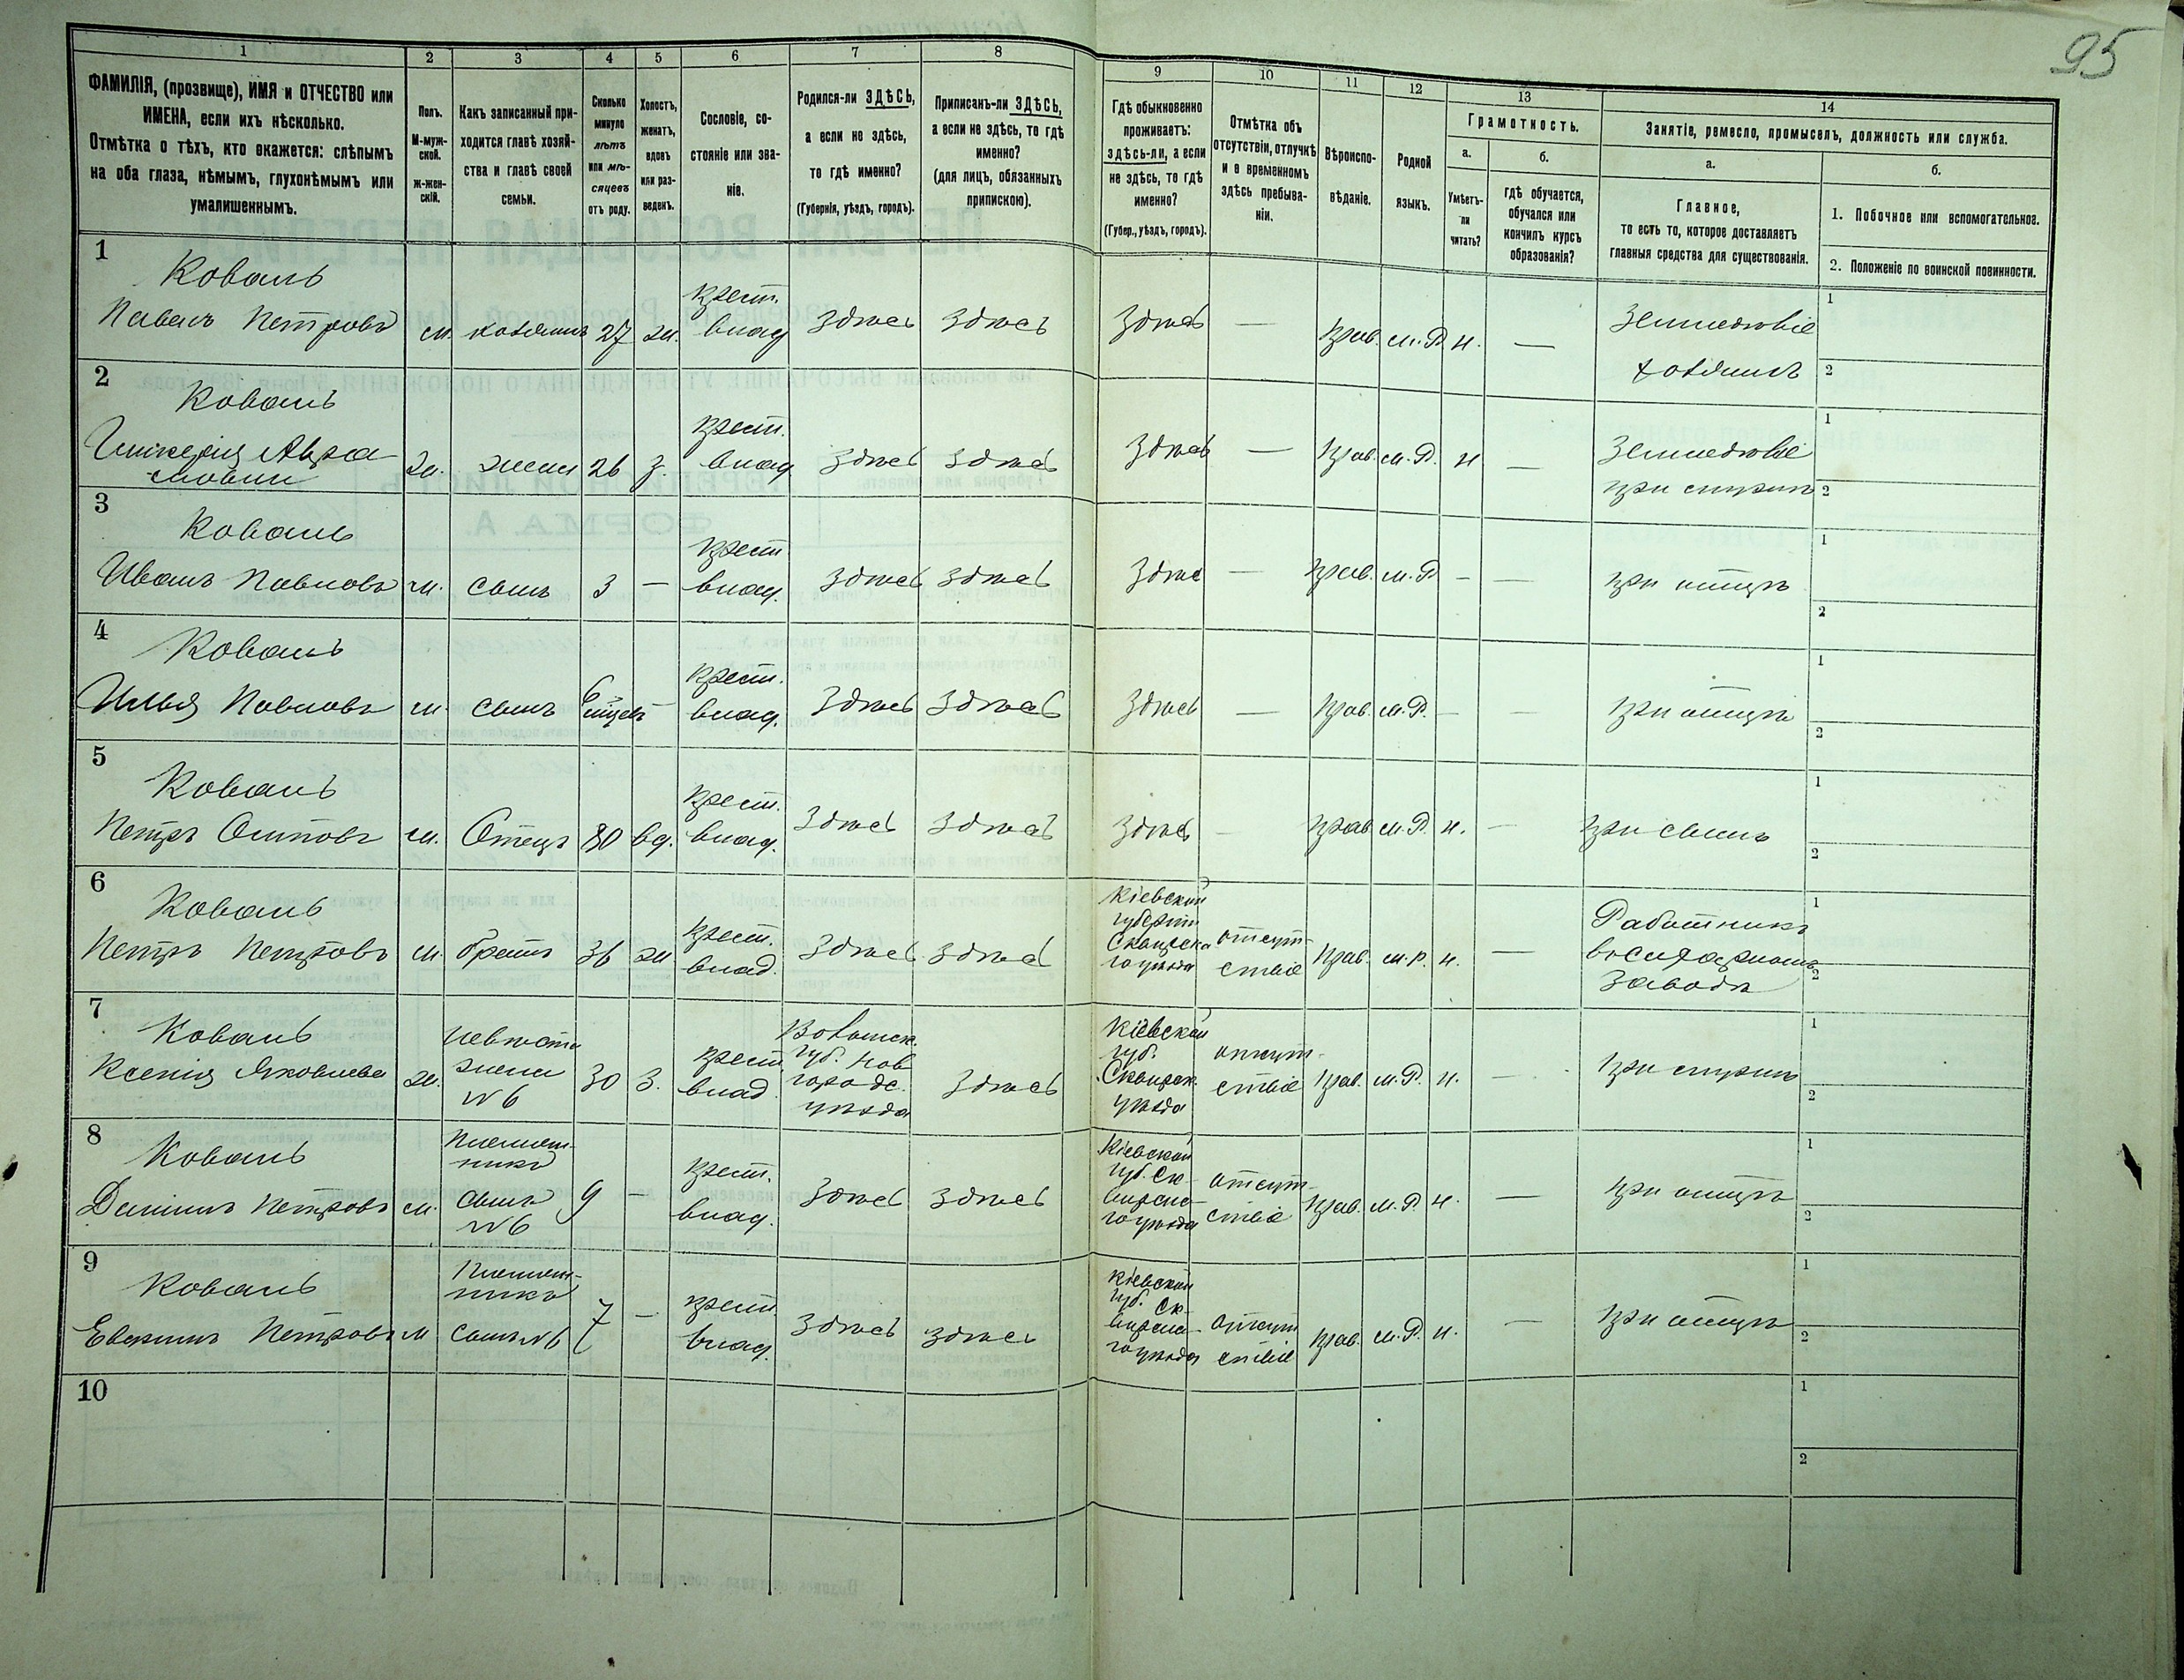 95
1 2 3 4 5 6 7 8 9 10 11 12 13 14
ФАМИЛІЯ, (прозвище), ИМЯ и ОТЧЕСТВО или
ИМЕНА, если ихъ нѣсколько.
Отмѣтка о тѣхъ, кто окажется: слѣпымъ
на оба глаза, нѣмымъ, глухонѣмымъ или
умалишеннымъ.
Полъ.
М-муж-
ской.
Ж-жен-
скій.
Какъ записанный при-
ходится главѣ хозяй-
ства и главѣ своей
семьи.
Сколько
минуло
лѣтъ
или мѣ-
сяцевъ
отъ роду.
Холостъ,
женатъ,
вдовъ
или раз-
веденъ.
Сословіе, со-
стояніе или зва-
ніе.
Родился-ли ЗДѢСЬ,
а если не здѣсь,
то гдѣ именно?
(Губернія, уѣздъ, городъ).
Приписанъ-ли ЗДѢСЬ,
а если не здѣсь, то гдѣ
именно?
(для лицъ, обязанныхъ
припискою).
Гдѣ обыкновенно
проживаетъ:
здѣсь-ли, а если
не здѣсь, то гдѣ
именно?
(Губер., уѣздъ, городъ).
Отмѣтка объ
отсутствіи, отлучкѣ
и о временномъ
здѣсь пребыва-
ніи.
Вѣроиспо-
вѣданіе.
Родной
языкъ.
Грамотность.
а.
Умѣетъ-
ли
читать?
б.
гдѣ обучается,
обучался или
кончилъ курсъ
образованія?
Занятіе, ремесло, промыселъ, должность или служба.
а.
Главное,
то есть то, которое доставляетъ
главныя средства для существованія.
б.
1. Побочное или вспомогательное.
2. Положеніе по воинской повинности.
1
Коваль
Павелъ Петровъ м. хозяинъ 27 ж. крест. влад. здѣсь здѣсь здѣсь — прав. м.Р. н. — Земледѣліе
хозяинъ
1
2
2
Коваль
Гликерія Авра-
мовна ж. жена 26 з. крест. влад. здѣсь здѣсь здѣсь — прав. м.Р. н — Земледѣліе
при мужѣ
1
2
3
Коваль
Иванъ Павловъ м. сынъ 3 — крест влад. здѣсь здѣсь здѣс — прав. м.Р — — при отцѣ
1
2
4
Коваль
Илья Павловъ м сынъ 6 мѣсц. — крест. влад. здѣсь здѣсь здѣсь — прав. м.Р. — — при отцѣ
1
2
5
Коваль
Петръ Осиповъ м. Отецъ 80 вд. крест. влад. здѣсь здѣсь здѣсь — прав м.Р. н. — при сынѣ
1
2
6
Коваль
Петръ Петровъ м. братъ 36 ж крест. влад. здѣсь здѣсь
Кіевской
губерніи
Сквирска
го уѣзда
отсут-
ствіе прав. м.Р. н. —
Работникъ
въ сахарномъ
заводѣ
1
2
7
Коваль
Ксенія Яковлева ж.
невѣстка
жена
№6
30 з. крест влад.
Волынск.
губ. Нов
городс.
уѣзда
здѣсь
Кіевской
губ.
Сквирск.
уѣзда
отсут-
ствіе прав. м.Р. н. — при мужѣ
1
2
8
Коваль
Даніилъ Петровъ м.
Племян-
никъ
сынъ
№6
9 — крест. влад. здѣсь здѣсь
Кіевской
губ. Ск-
вирска-
го уѣзда
отсут-
ствіе прав. м.Р. н. — при отцѣ
1
2
9
Коваль
Евфимъ Петровъ м
Племян-
никъ
сынъ №6
7 — крест влад. здѣсь здѣсь
Кіевской
губ. Ск-
вирска-
го уѣзда
отсут
ствіе прав. м.Р. н. — при отцѣ
1
2
10
1
2